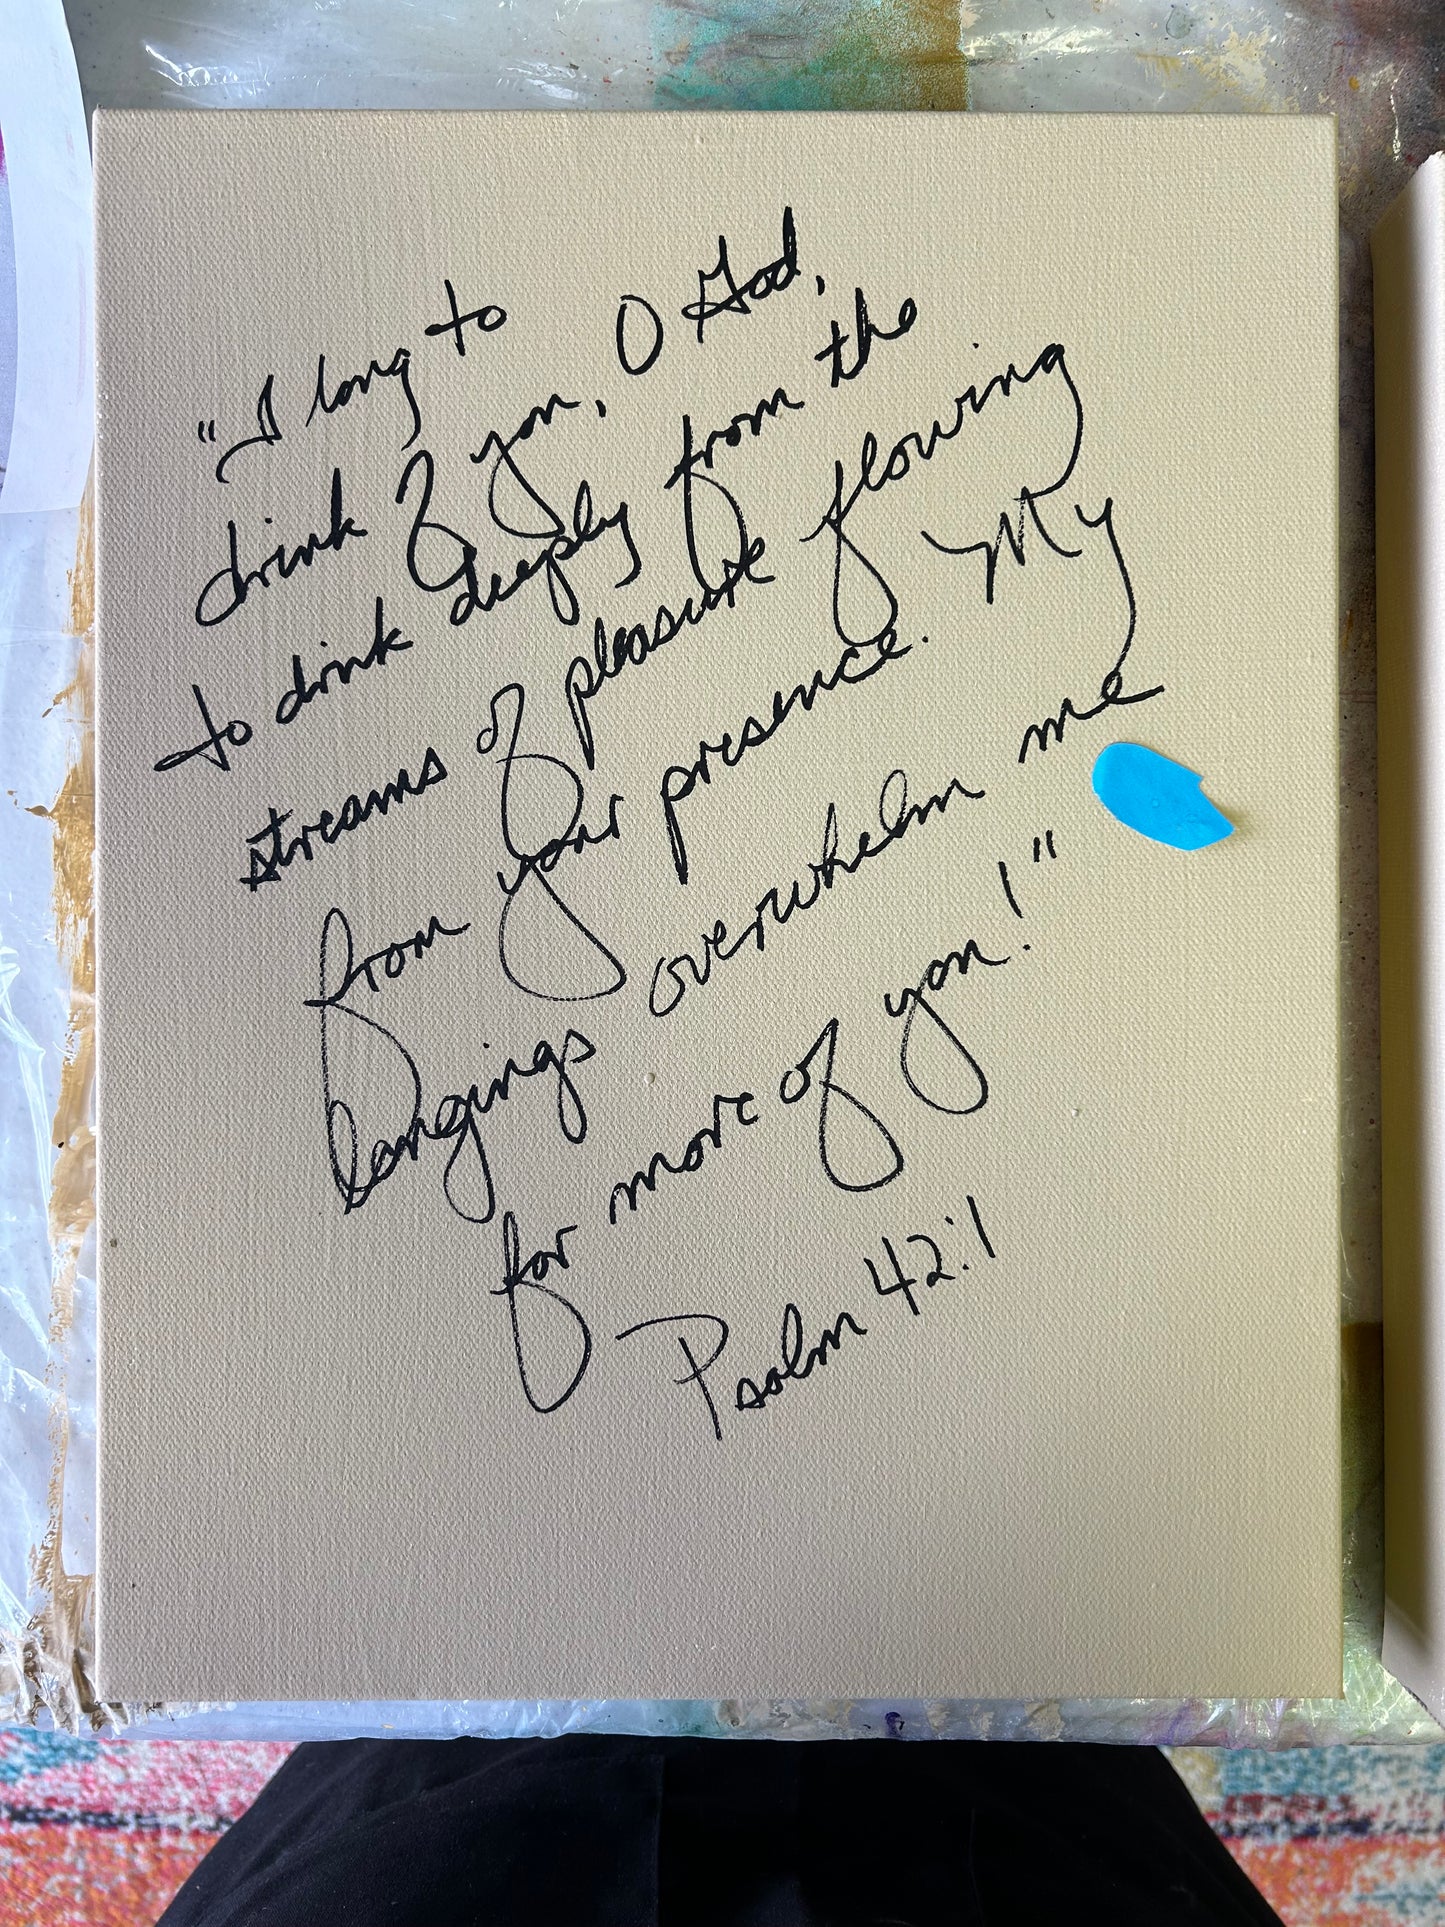 "I long to
drink of you, O God,
to drink deeply from the
streams of pleasure flowing
from your presence. My
longings overwhelm me
for more of you!"
Psalm 42:1